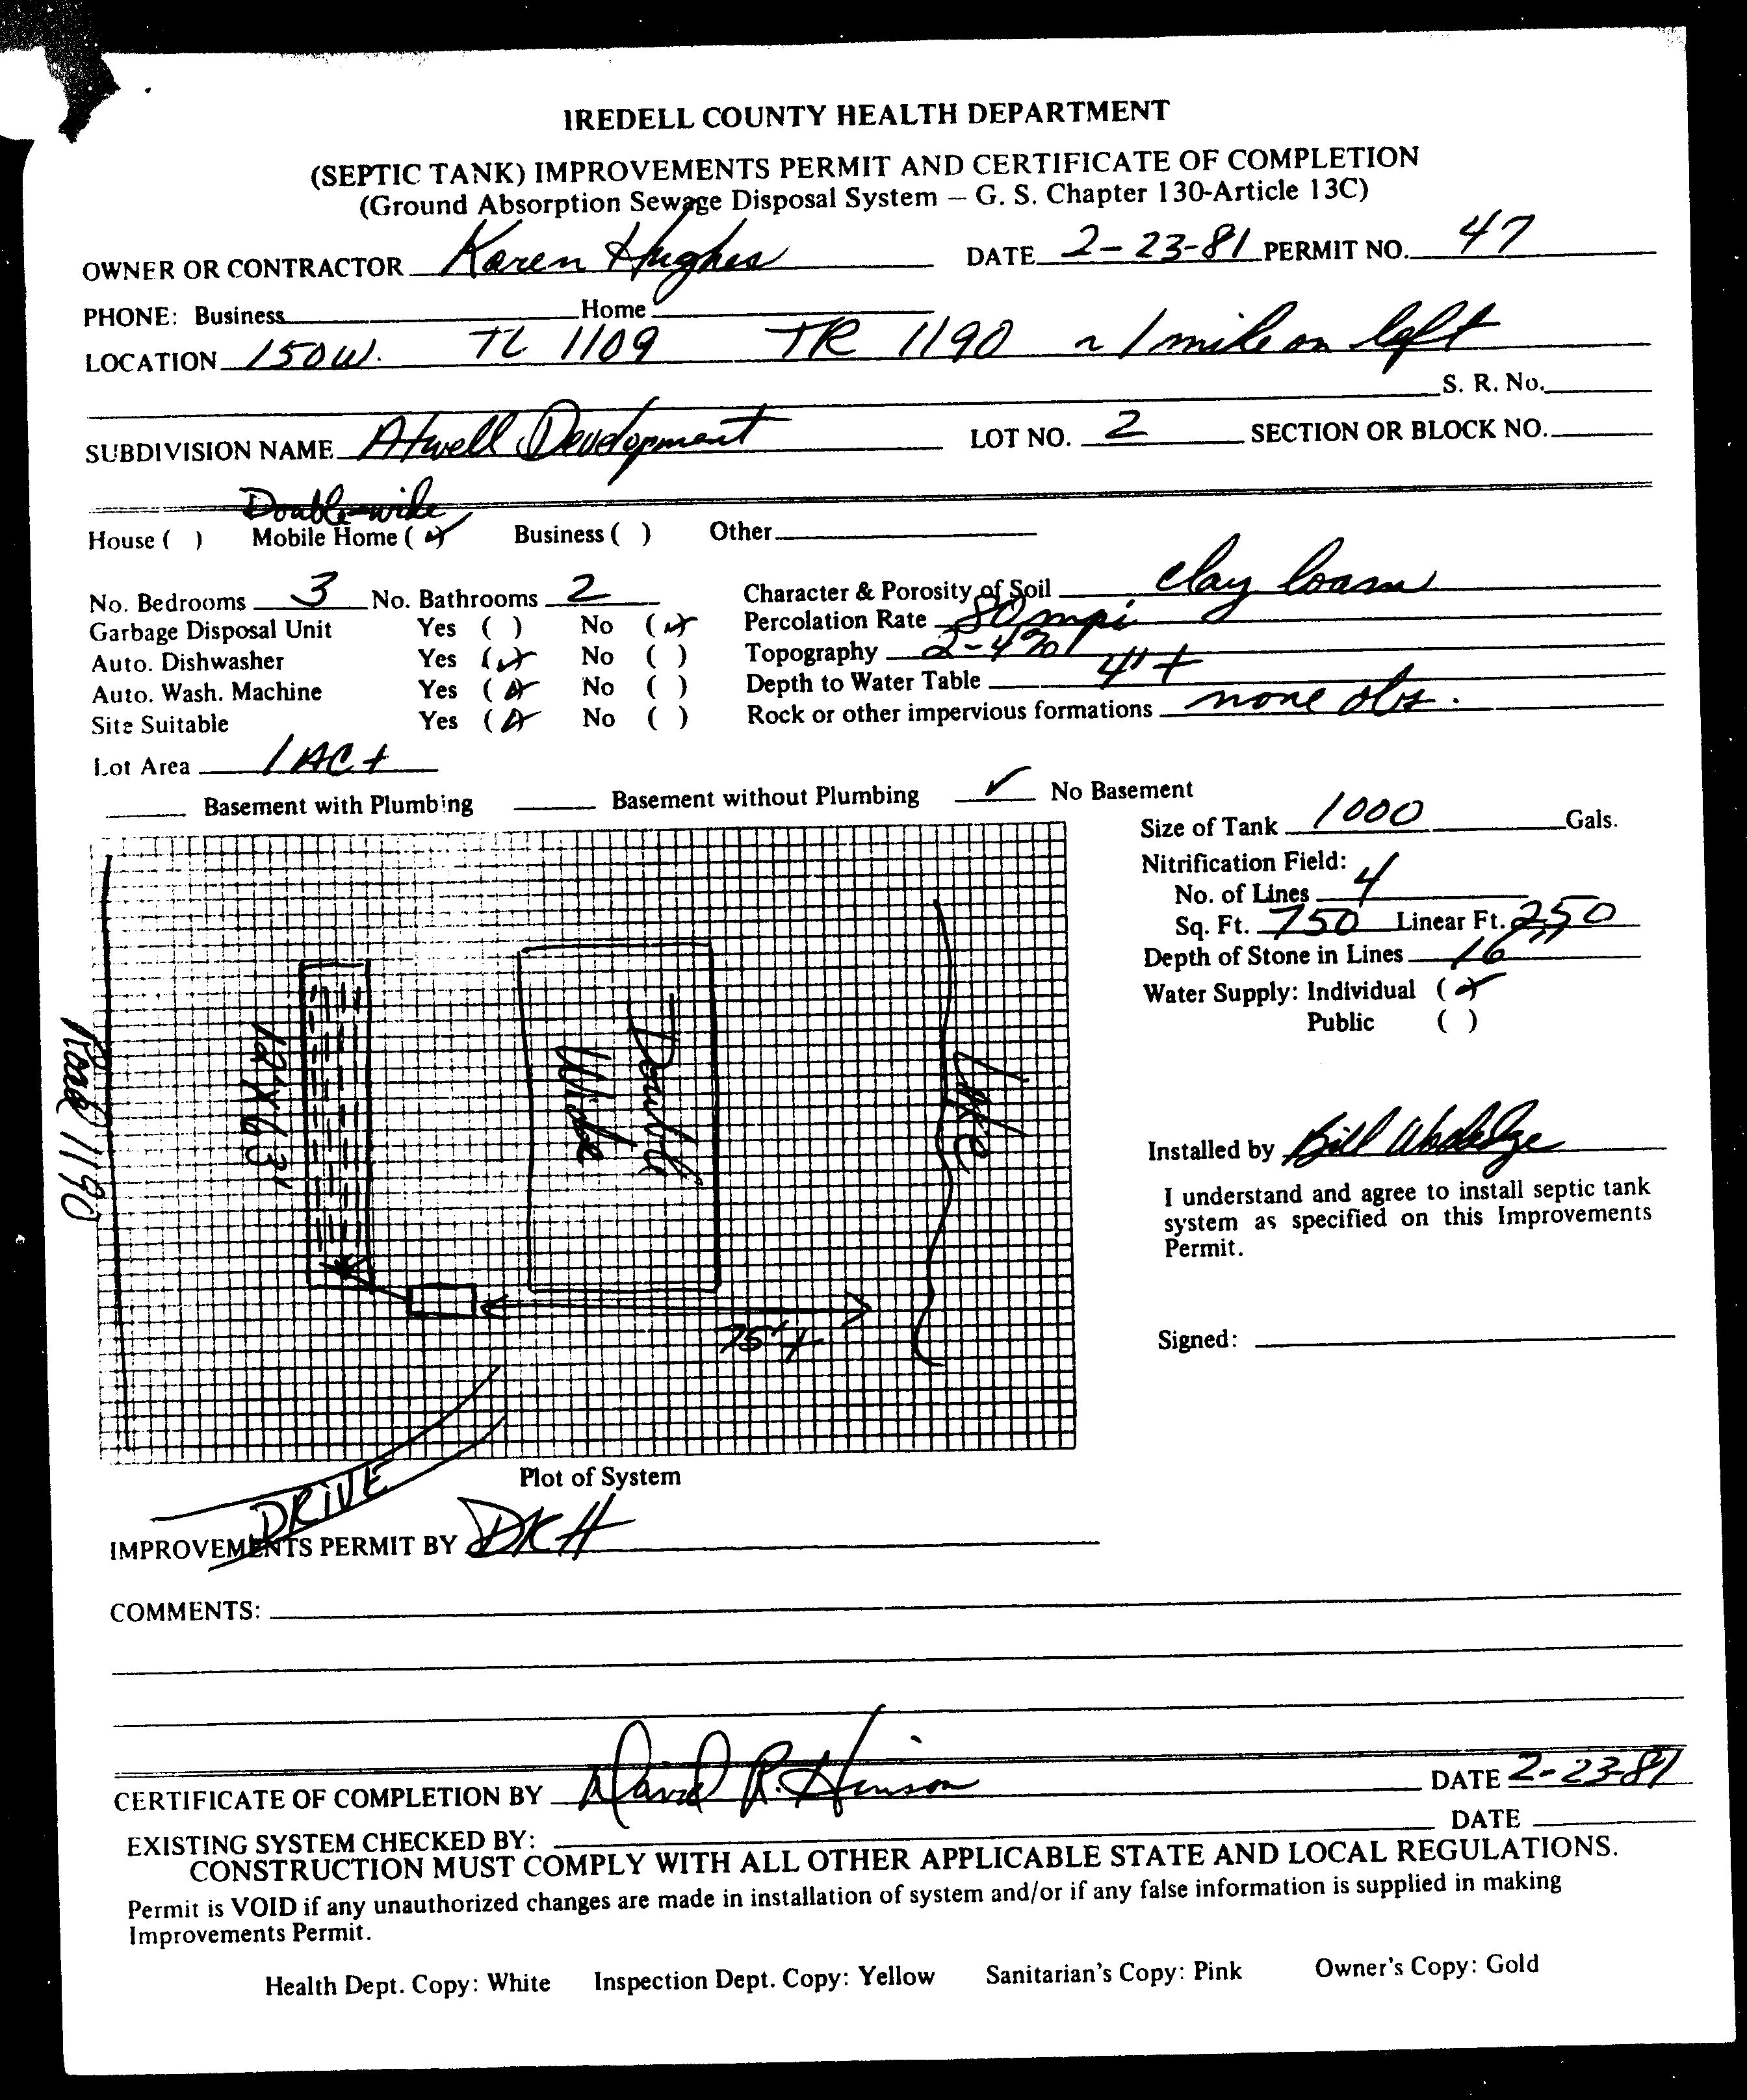 IREDELL COUNTY HEALTH DEPARTMENT
(SEPTIC TANK) IMPROVEMENTS PERMIT AND CERTIFICATE OF COMPLETION
(Ground Absorption Sewage Disposal System — G. S. Chapter 130-Article 13C)
OWNER OR CONTRACTOR Karen Hughes DATE 2-23-81 PERMIT NO. 47
PHONE: Business Home
LOCATION 150W. TL 1109 TR 1190 ~ 1 mile on left
S. R. No.
SUBDIVISION NAME Atwell Development LOT NO. 2 SECTION OR BLOCK NO.
Double-wide
House ( ) Mobile Home (✓) Business ( ) Other
No. Bedrooms 3 No. Bathrooms 2 Character & Porosity of Soil clay loam
Garbage Disposal Unit Yes ( ) No (✓) Percolation Rate 80 mpi
Auto. Dishwasher Yes (✓) No ( ) Topography 2-4%
Auto. Wash. Machine Yes (✓) No ( ) Depth to Water Table 4'+
Site Suitable Yes (✓) No ( ) Rock or other impervious formations none obs.
Lot Area 1 AC +
Basement with Plumbing Basement without Plumbing ✓ No Basement
Size of Tank 1000 Gals.
Nitrification Field:
No. of Lines 4
Sq. Ft. 750 Linear Ft. 250
Depth of Stone in Lines 16"
Water Supply: Individual (✓)
Public ( )
Road 1190
12' X 63'
Double
Wide
Lake
75'+
Installed by Bill
I understand and agree to install septic tank
system as specified on this Improvements
Permit.
Signed:
Plot of System
DRIVE
IMPROVEMENTS PERMIT BY DKH
COMMENTS:
CERTIFICATE OF COMPLETION BY David R. Hinson DATE 2-23-81
EXISTING SYSTEM CHECKED BY: DATE
CONSTRUCTION MUST COMPLY WITH ALL OTHER APPLICABLE STATE AND LOCAL REGULATIONS.
Permit is VOID if any unauthorized changes are made in installation of system and/or if any false information is supplied in making
Improvements Permit.
Health Dept. Copy: White Inspection Dept. Copy: Yellow Sanitarian's Copy: Pink Owner's Copy: Gold